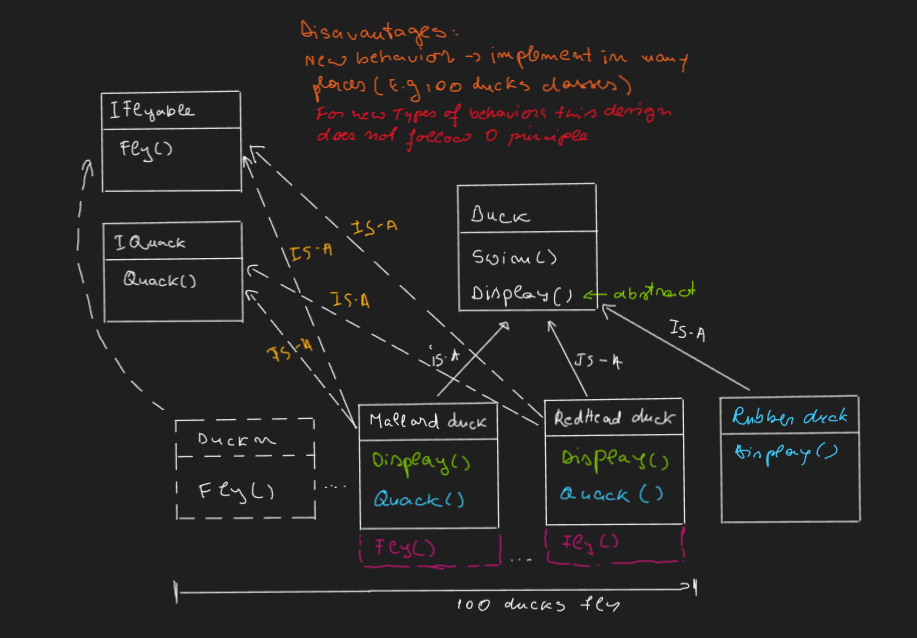 Disavantages:
New behavior → implement in many
places (E.g 100 ducks classes)
For new Types of behaviors this design
does not follow O principle
IFlyable
Fly()
IQuack
Quack()
Duck
Swim()
Display() ← abstract
IS-A
IS-A
IS-A
IS-A
is-A
IS-A
IS-A
Duck n
Fly()
...
Mallard duck
Display()
Quack()
Fly()
...
RedHead duck
Display()
Quack()
Fly()
Rubber duck
Display()
100 ducks fly